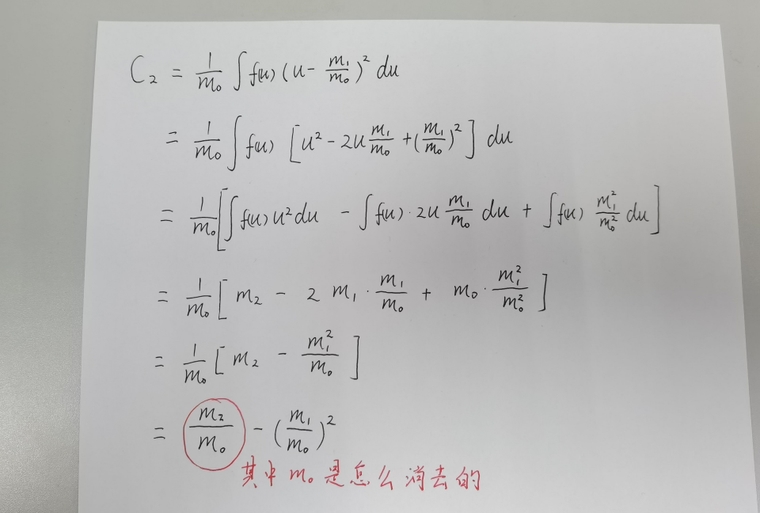 C₂ = 1/m₀ ∫ f(u) (u - m₁/m₀)² du
= 1/m₀ ∫ f(u) [u² - 2u m₁/m₀ + (m₁/m₀)²] du
= 1/m₀ [∫ f(u) u² du - ∫ f(u) · 2u m₁/m₀ du + ∫ f(u) m₁²/m₀² du]
= 1/m₀ [m₂ - 2 m₁ · m₁/m₀ + m₀ · m₁²/m₀²]
= 1/m₀ [m₂ - m₁²/m₀]
= m₂/m₀ - (m₁/m₀)²
其中 m₀ 是怎么消去的